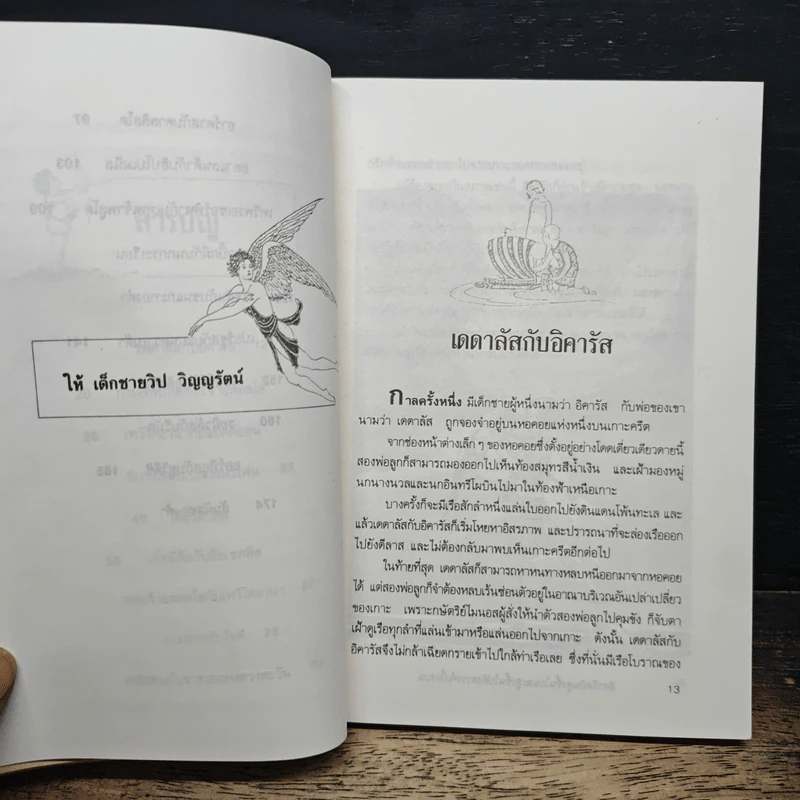 ให้ เด็กชายวิป วิญญรัตน์
เดดาลัสกับอิคารัส
กาลครั้งหนึ่ง มีเด็กชายผู้หนึ่งนามว่า อิคารัส กับพ่อของเขา
นามว่า เดดาลัส ถูกจองจำอยู่บนหอคอยแห่งหนึ่งบนเกาะครีต
จากช่องหน้าต่างเล็ก ๆ ของหอคอยซึ่งตั้งอยู่อย่างโดดเดี่ยวเดียวดายนี้
สองพ่อลูกก็สามารถมองออกไปเห็นท้องสมุทรสีน้ำเงิน และเฝ้ามองหมู่
นกนางนวลและนกอินทรีโผบินไปมาในท้องฟ้าเหนือเกาะ
บางครั้งก็จะมีเรือสักลำหนึ่งแล่นใบออกไปยังดินแดนโพ้นทะเล และ
แล้วเดดาลัสกับอิคารัสก็เริ่มโหยหาอิสรภาพ และปรารถนาที่จะล่องเรือออก
ไปยังดีลาส และไม่ต้องกลับมาพบเห็นเกาะครีตอีกต่อไป
ในท้ายที่สุด เดดาลัสก็สามารถหาหนทางหลบหนีออกมาจากหอคอย
ได้ แต่สองพ่อลูกก็จำต้องหลบเร้นซ่อนตัวอยู่ในอาณาบริเวณอันเปล่าเปลี่ยว
ของเกาะ เพราะกษัตริย์ไมนอสผู้สั่งให้นำตัวสองพ่อลูกไปคุมขัง ก็จับตา
เฝ้าดูเรือทุกลำที่แล่นเข้ามาหรือแล่นออกไปจากเกาะ ดังนั้น เดดาลัสกับ
อิคารัสจึงไม่กล้าเฉียดกรายเข้าไปใกล้ท่าเรือเลย ซึ่งที่นั่นมีเรือโบราณของ
13